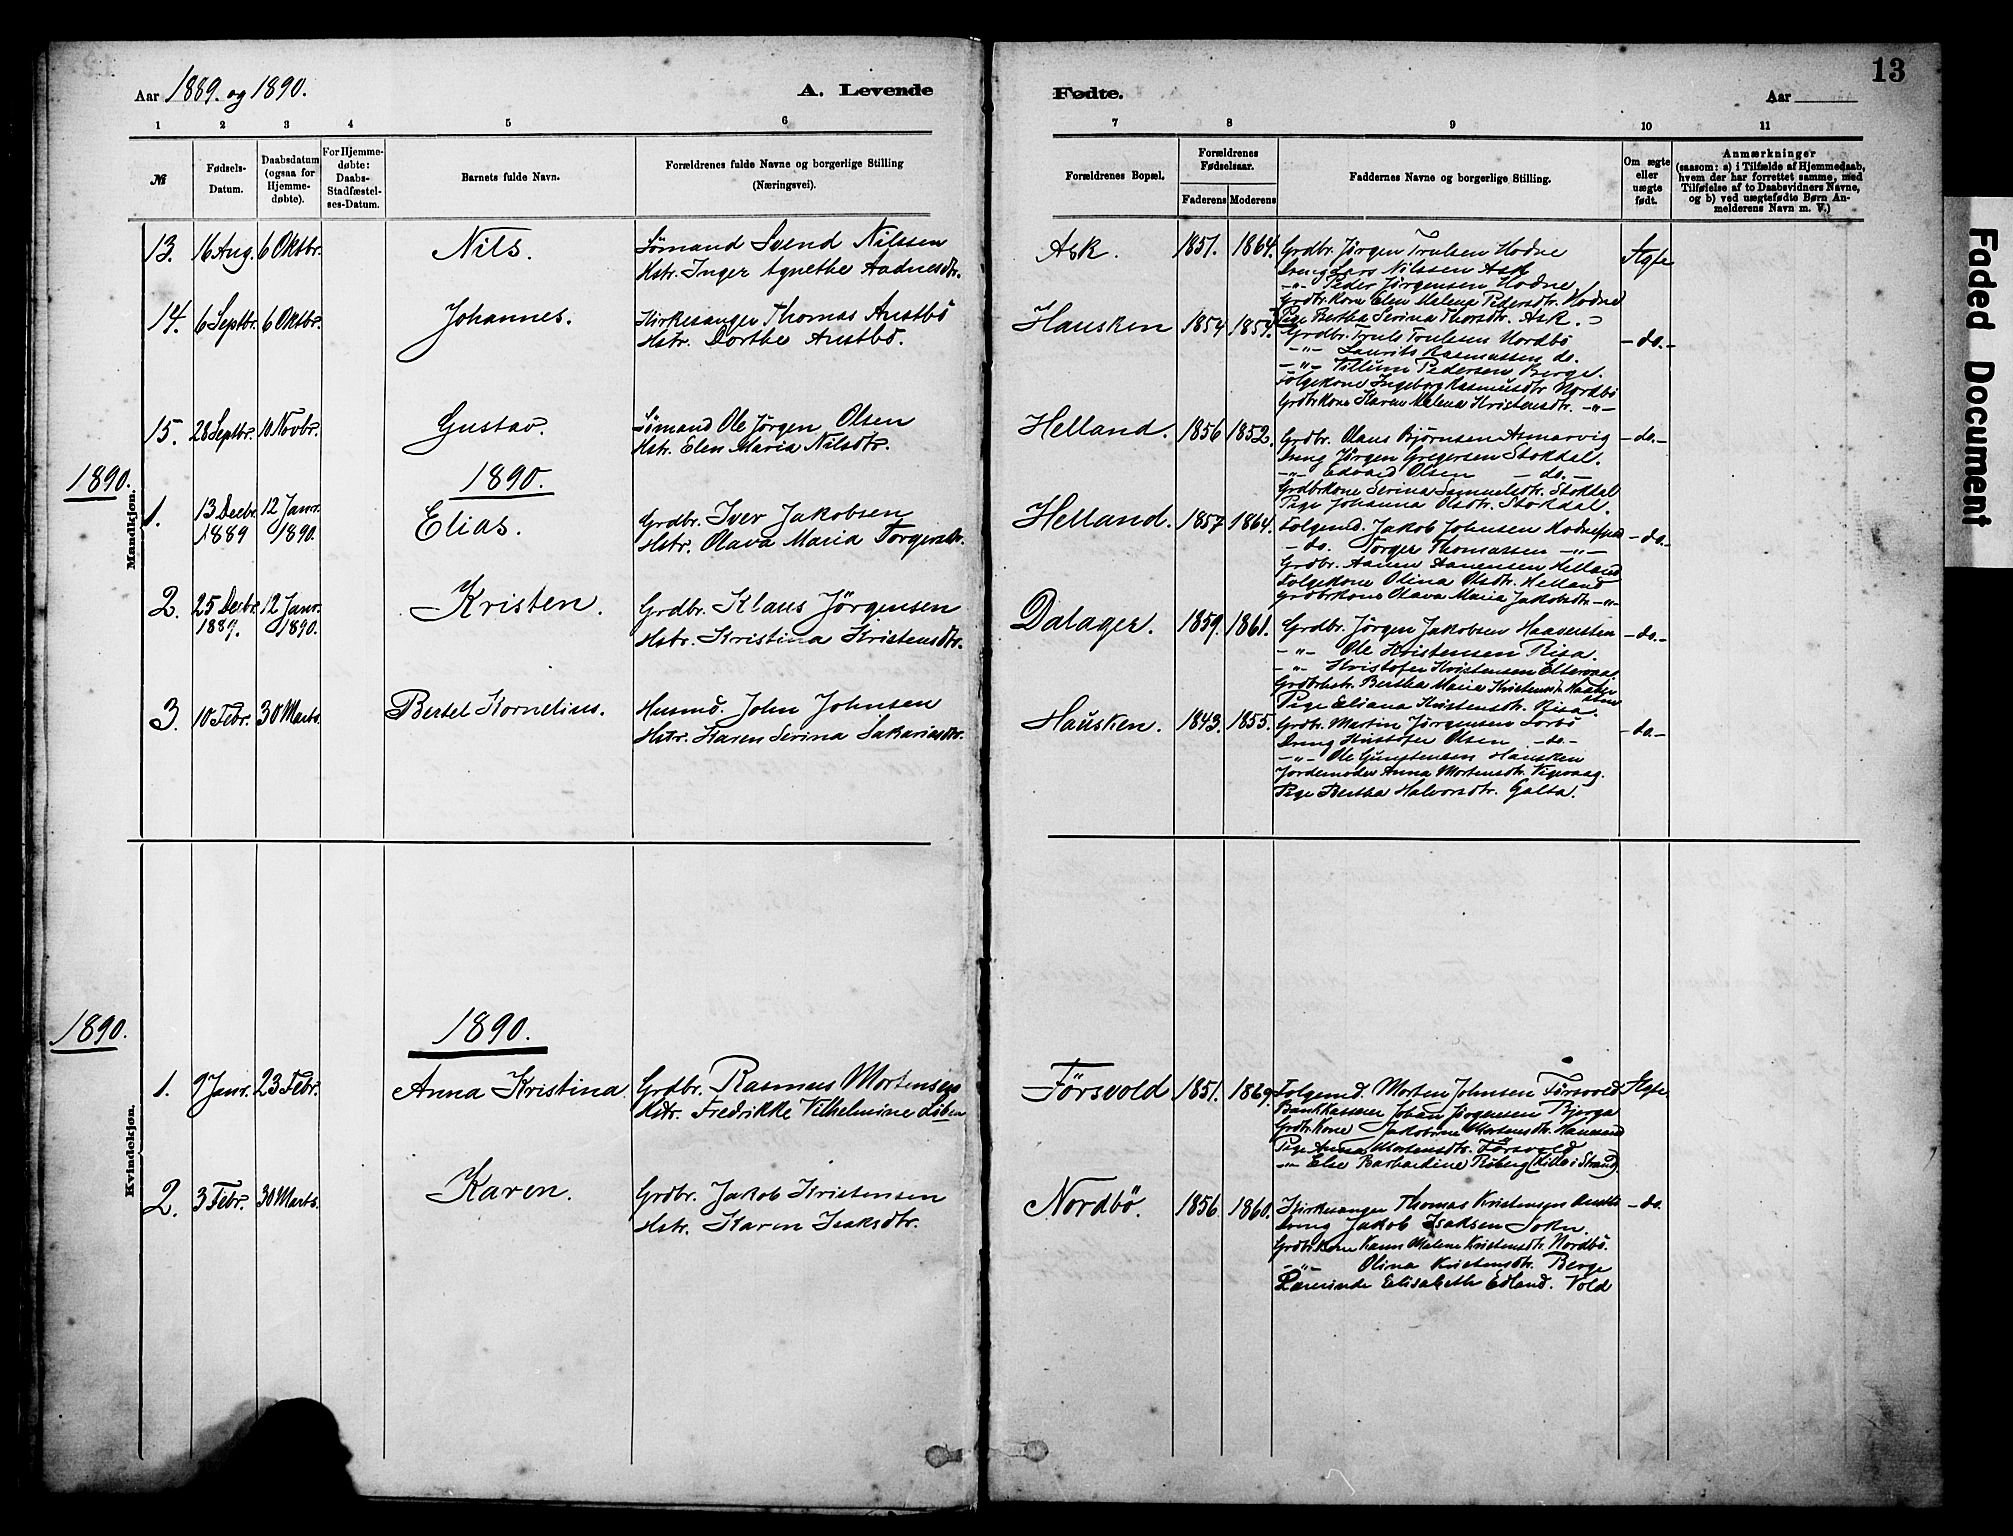 13
Aar 1889. og 1890.
A. Levende Fødte.
Aar
1 2 3 4 5 6 7 8 9 10 11
№
Fødsels-Datum.
Daabsdatum (ogsaa for Hjemme-døbte).
For Hjemme-døbte: Daabs-Stadfæstel-ses-Datum.
Barnets fulde Navn.
Forældrenes fulde Navne og borgerlige Stilling (Næringsvei).
Forældrenes Bopæl.
Forældrenes Fødselsaar.
Faderens Moderens
Faddernes Navne og borgerlige Stilling.
Om ægte eller uægte født.
Anmærkninger
(saasom: a) i Tilfælde af Hjemmedaab,
hvem der har forrettet samme, med
Tilføielse af to Daabsvidners Navne,
og b) ved uægtefødte Børn An-
melderens Navn m. V.)
Mandkjøn.
13. 16 Aug. 6 Oktbr. Nils. Sømand Svend Nilssen
Hstr. Inger Agnethe Aadnesdtr.
Ask. 1851. 1864. Grdbr. Jörgen Trulsen Hodne Ægte
Dreng Lars Nilssen Ask
-"- Peder Jörgensen Hodne
Grdbr.kone Elen Malena Pedersdtr. Hodne
Pige Bertha Serina Thorsdtr. Ask.
14. 6 Septbr. 6 Oktbr. Johannes. Kirkesanger Thomas Austbö
Hstr. Dorthe Austbö.
Hausken 1854 1854. Grdbr. Truls Trulsen Nordbö -do.-
-"- Laurits Rasmussen do.
-"- Pedersen Berge.
Folgekone Ingeborg Rasmusdtr Nordbö
Grdbrkone Karen Malena Kristensdtr. -"-
15. 28 Septbr. 10 Novbr. Gustav. Sömand Ole Jörgen Olsen
Hstr. Elen Maria Nilsdtr.
Helland. 1856 1852. Grdbr. Olaus Björnsen Asmarvig -do.-
Dreng Jörgen Gregersen Stokdal.
-"- Edvard Olsen -do.-
Grdbrkone Serina Samuelsdtr. Stokdal
Pige Johanna Olsdtr. Stokdal.
1890. 1890.
1. 13 Decbr. 1889 12 Janr. 1890. Elias. Grdbr. Iver Jakobsen
Hstr. Olava Maria Torgersdtr.
Helland. 1857 1864. Folgemd. Jakob Johnsen -do.-
-do. Torger Thomassen -"-
Grdbr. Aanen Aanensen Helland
Folgekone Olina Olsdtr. Helland
Grdbrkone Olava Maria Jakobsdtr. -"-
2. 25 Decbr. 1889. 12 Janr. 1890. Kristen. Grdbr. Klaus Jörgensen
Hstr. Kristina Kristensdtr.
Dalager. 1859. 1861. Grdbr. Jörgen Jakobsen -do.-
-"- Ole Kristensen Risa.
-"- Kristofer Kristensen
Grdbrhstr. Bertha Maria Kristensdtr.
Pige Eliana Kristensdtr. Risa.
3. 10 Febr. 30 Marts. Bertel Kornelius. Husmd. John Johnsen
Hstr. Karen Serina Sakariasdtr.
Hausken. 1843. 1855. Grdbr. Martin Jörgensen Sorbö -do.-
Dreng Kristofer Olsen -do.-
-"- Ole Hausken
Jordemoder Anna Mortensdtr. Vigvaag.
Pige Bertha Halvorsdtr. Galta.
Kvindekjøn.
1890. 1890.
1. 9 Janr. 23 Febr. Anna Kristina Grdbr. Rasmus Mortensen
Hstr. Fredrikke Vilhelmine
Försvold 1851. 1869. Folgemd. Morten Johnsen Försvold Ægte
Bankkasserer Johan Jörgensen Bjerga
Grdbrkone Jakobine Mortensdtr.
Pige Anna Mortensdtr. Försvold
-"- Else Barbardine Röberg (Lille i Strand)
2. 3 Febr. 30 Marts. Karen. Grdbr. Jakob Kristensen
Hstr. Karen Isaksdtr.
Nordbö. 1856 1860. Kirkesanger Thomas Kristensen Austbö -do.
Dreng Jakob Isaksen Sokn.
Grdbrkone Karen Malene Kristensdtr. Nordbö.
-"- Olina Kristensdtr. Berge
Lærerinde Elisabeth Edland. Vold
Faded Document